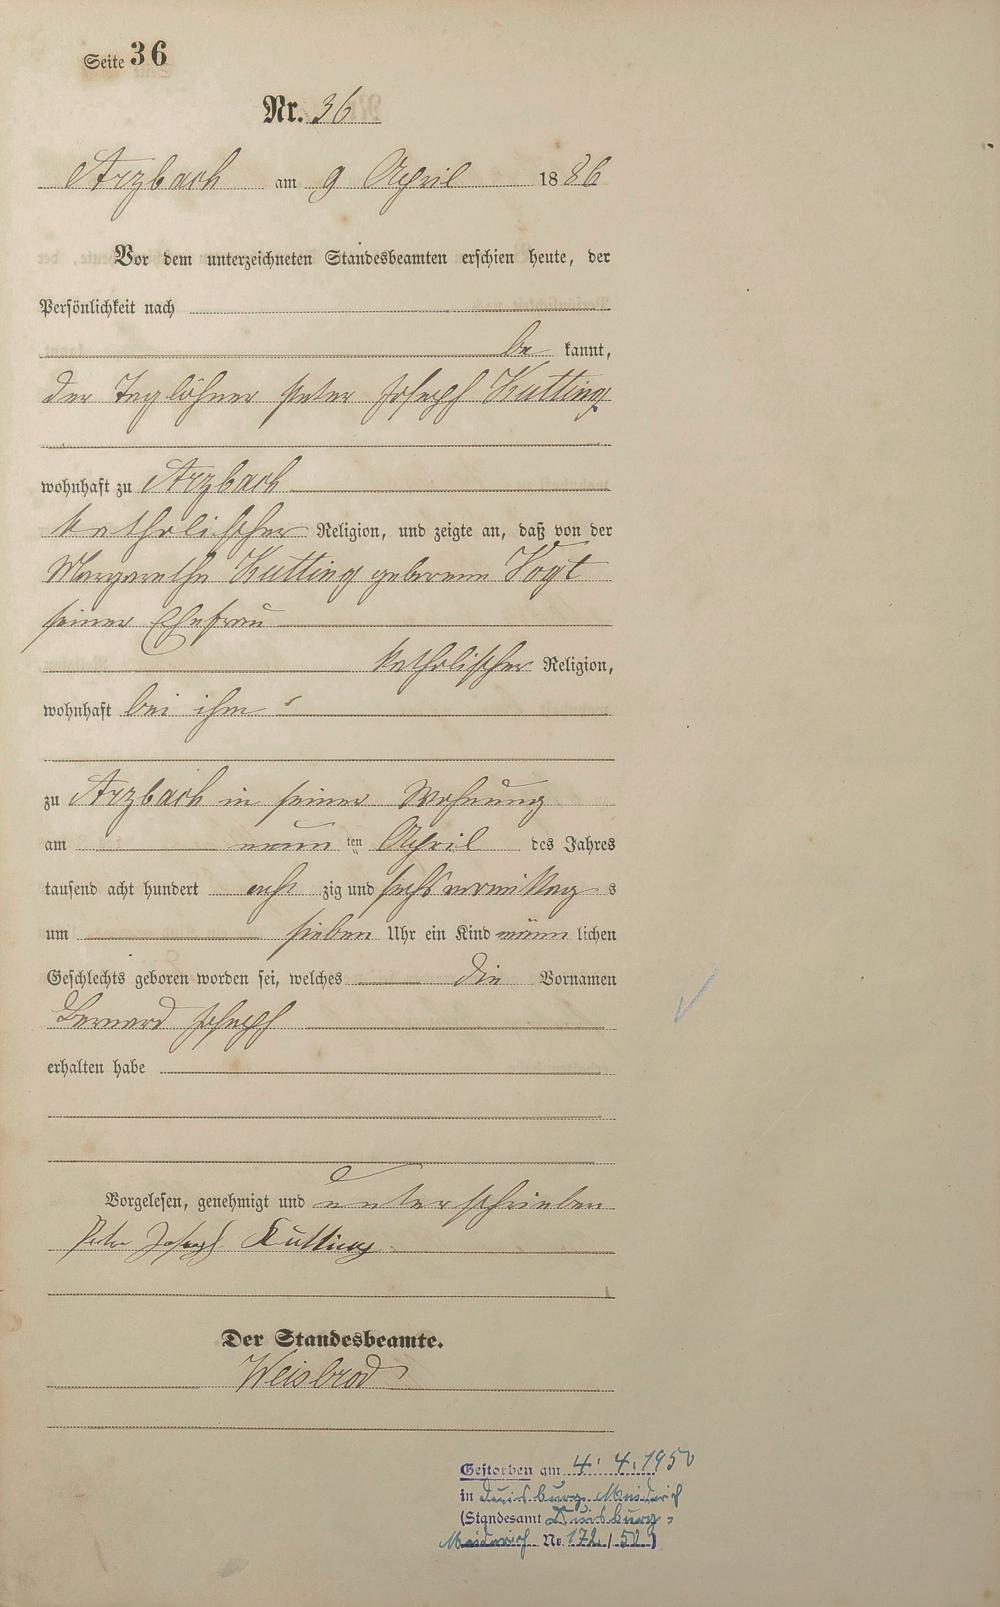 Seite 36
Nr. 36
Arzbach am 9 April 1886
Vor dem unterzeichneten Standesbeamten erschien heute, der
Persönlichkeit nach
be kannt,
der Taglöhner Peter Joseph Kutting
wohnhaft zu Arzbach
katholischer Religion, und zeigte an, daß von der
Margarethe Kutting geborenen Vogt
seiner Ehefrau
katholischer Religion,
wohnhaft bei ihm
zu Arzbach in seiner Wohnung
am neun ten April des Jahres
tausend acht hundert acht zig und sechs vormittag s
um sieben Uhr ein Kind männ lichen
Geschlechts geboren worden sei, welches die Vornamen
Bernard Joseph
erhalten habe
Vorgelesen, genehmigt und unterschrieben
Peter Joseph Kutting
Der Standesbeamte.
Weisbrod
Gestorben am 4. 4. 1950
in Duisburg-Meiderich
(Standesamt Duisburg-
Meiderich Nr. 172/50)